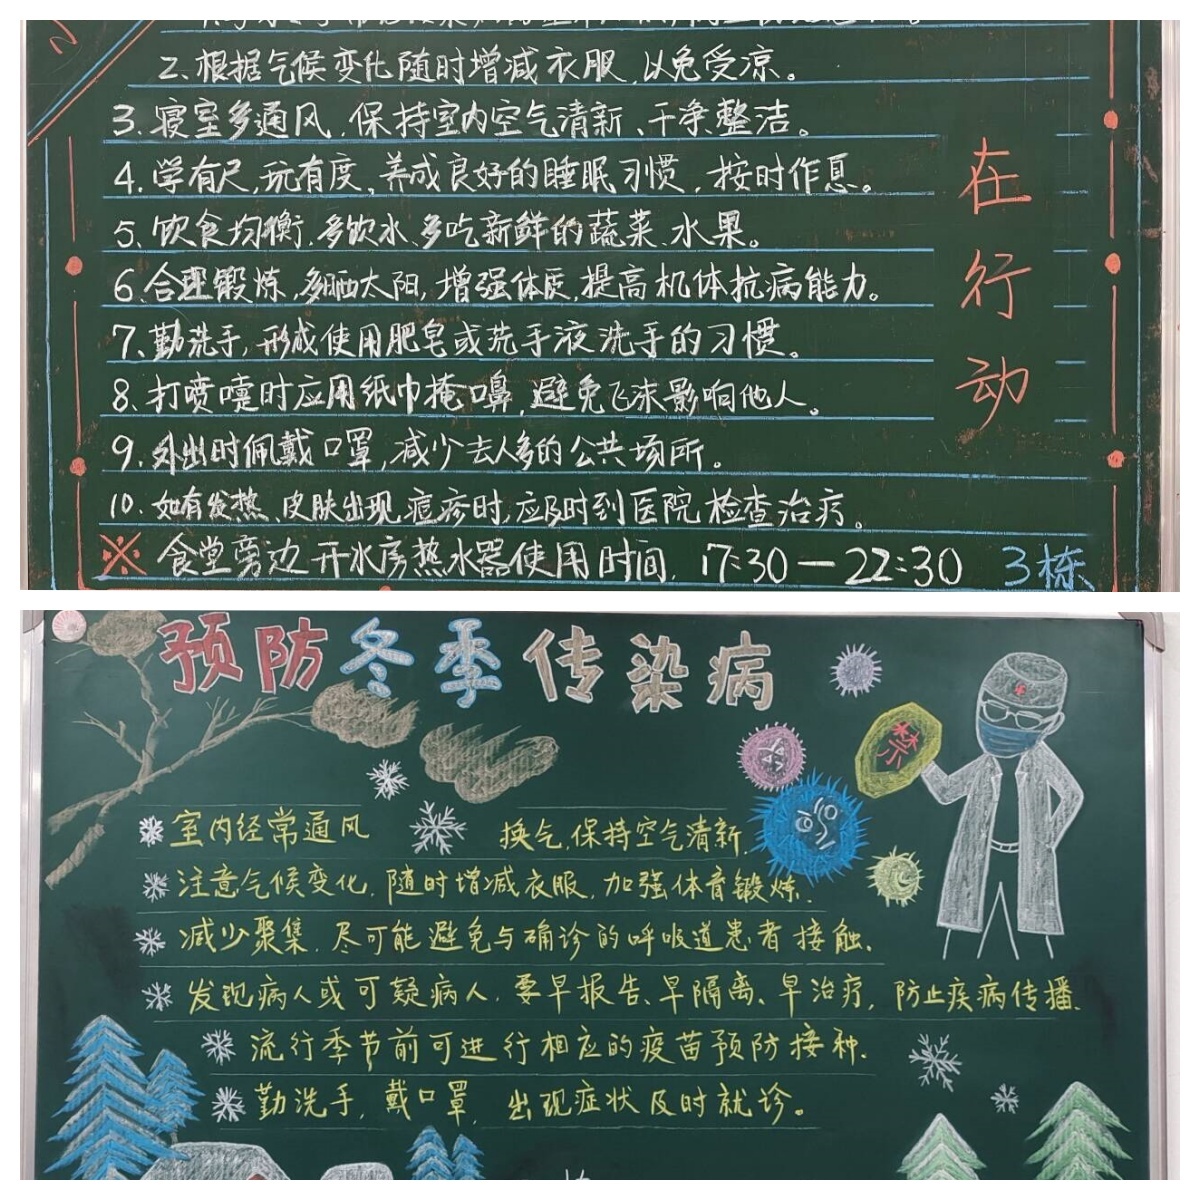 2、根据气候变化随时增减衣服,以免受凉。
3、寝室多通风,保持室内空气清新、干净整洁。
4、学有尺,玩有度,养成良好的睡眠习惯,按时作息。
5、饮食均衡,多饮水、多吃新鲜的蔬菜、水果。
6、合理锻炼,多晒太阳,增强体质,提高机体抗病能力。
7、勤洗手,形成使用肥皂或洗手液洗手的习惯。
8、打喷嚏时应用纸巾掩嘴鼻,避免飞沫影响他人。
9、外出时佩戴口罩,减少去人多的公共场所。
10、如有发热、皮肤出现疱疹时,应及时到医院检查治疗。
※食堂旁边开水房热水器使用时间, 17:30—22:30 3栋
在行动
预防冬季传染病
禁
室内经常通风 换气,保持空气清新.
注意气候变化,随时增减衣服,加强体育锻炼.
减少聚集,尽可能避免与确诊的呼吸道患者接触.
发现病人或可疑病人,要早报告、早隔离、早治疗,防止疾病传播.
流行季节前可进行相应的疫苗预防接种.
勤洗手,戴口罩,出现症状及时就诊。